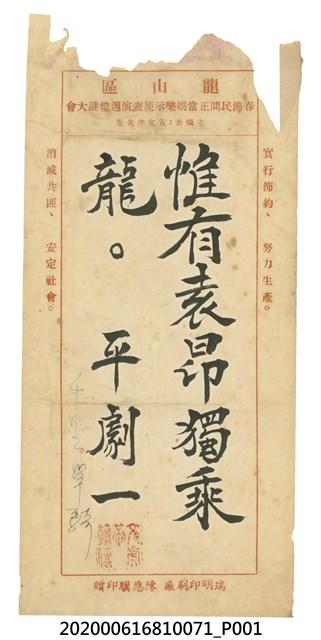 龍山區
春節民間正當娛樂示範表演週燈謎大會
主稿者：黃文虎先生
實行節約、努力生產。
惟有袁昂獨乘
龍。平劇一
千里單騎
消滅共匪、安定社會。
瑞明印刷廠 陳應騆印贈
202000616810071_P001